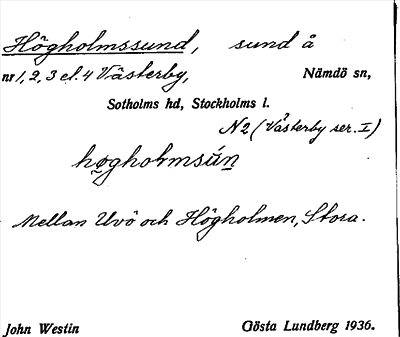 Högholmssund, sund å
nr 1, 2, 3 el. 4 Västerby, Nämdö sn,
Sotholms hd, Stockholms l.
N2 (Västerby ser. I)
Mellan Uvö och Högholmen, Stora.
John Westin Gösta Lundberg 1936.